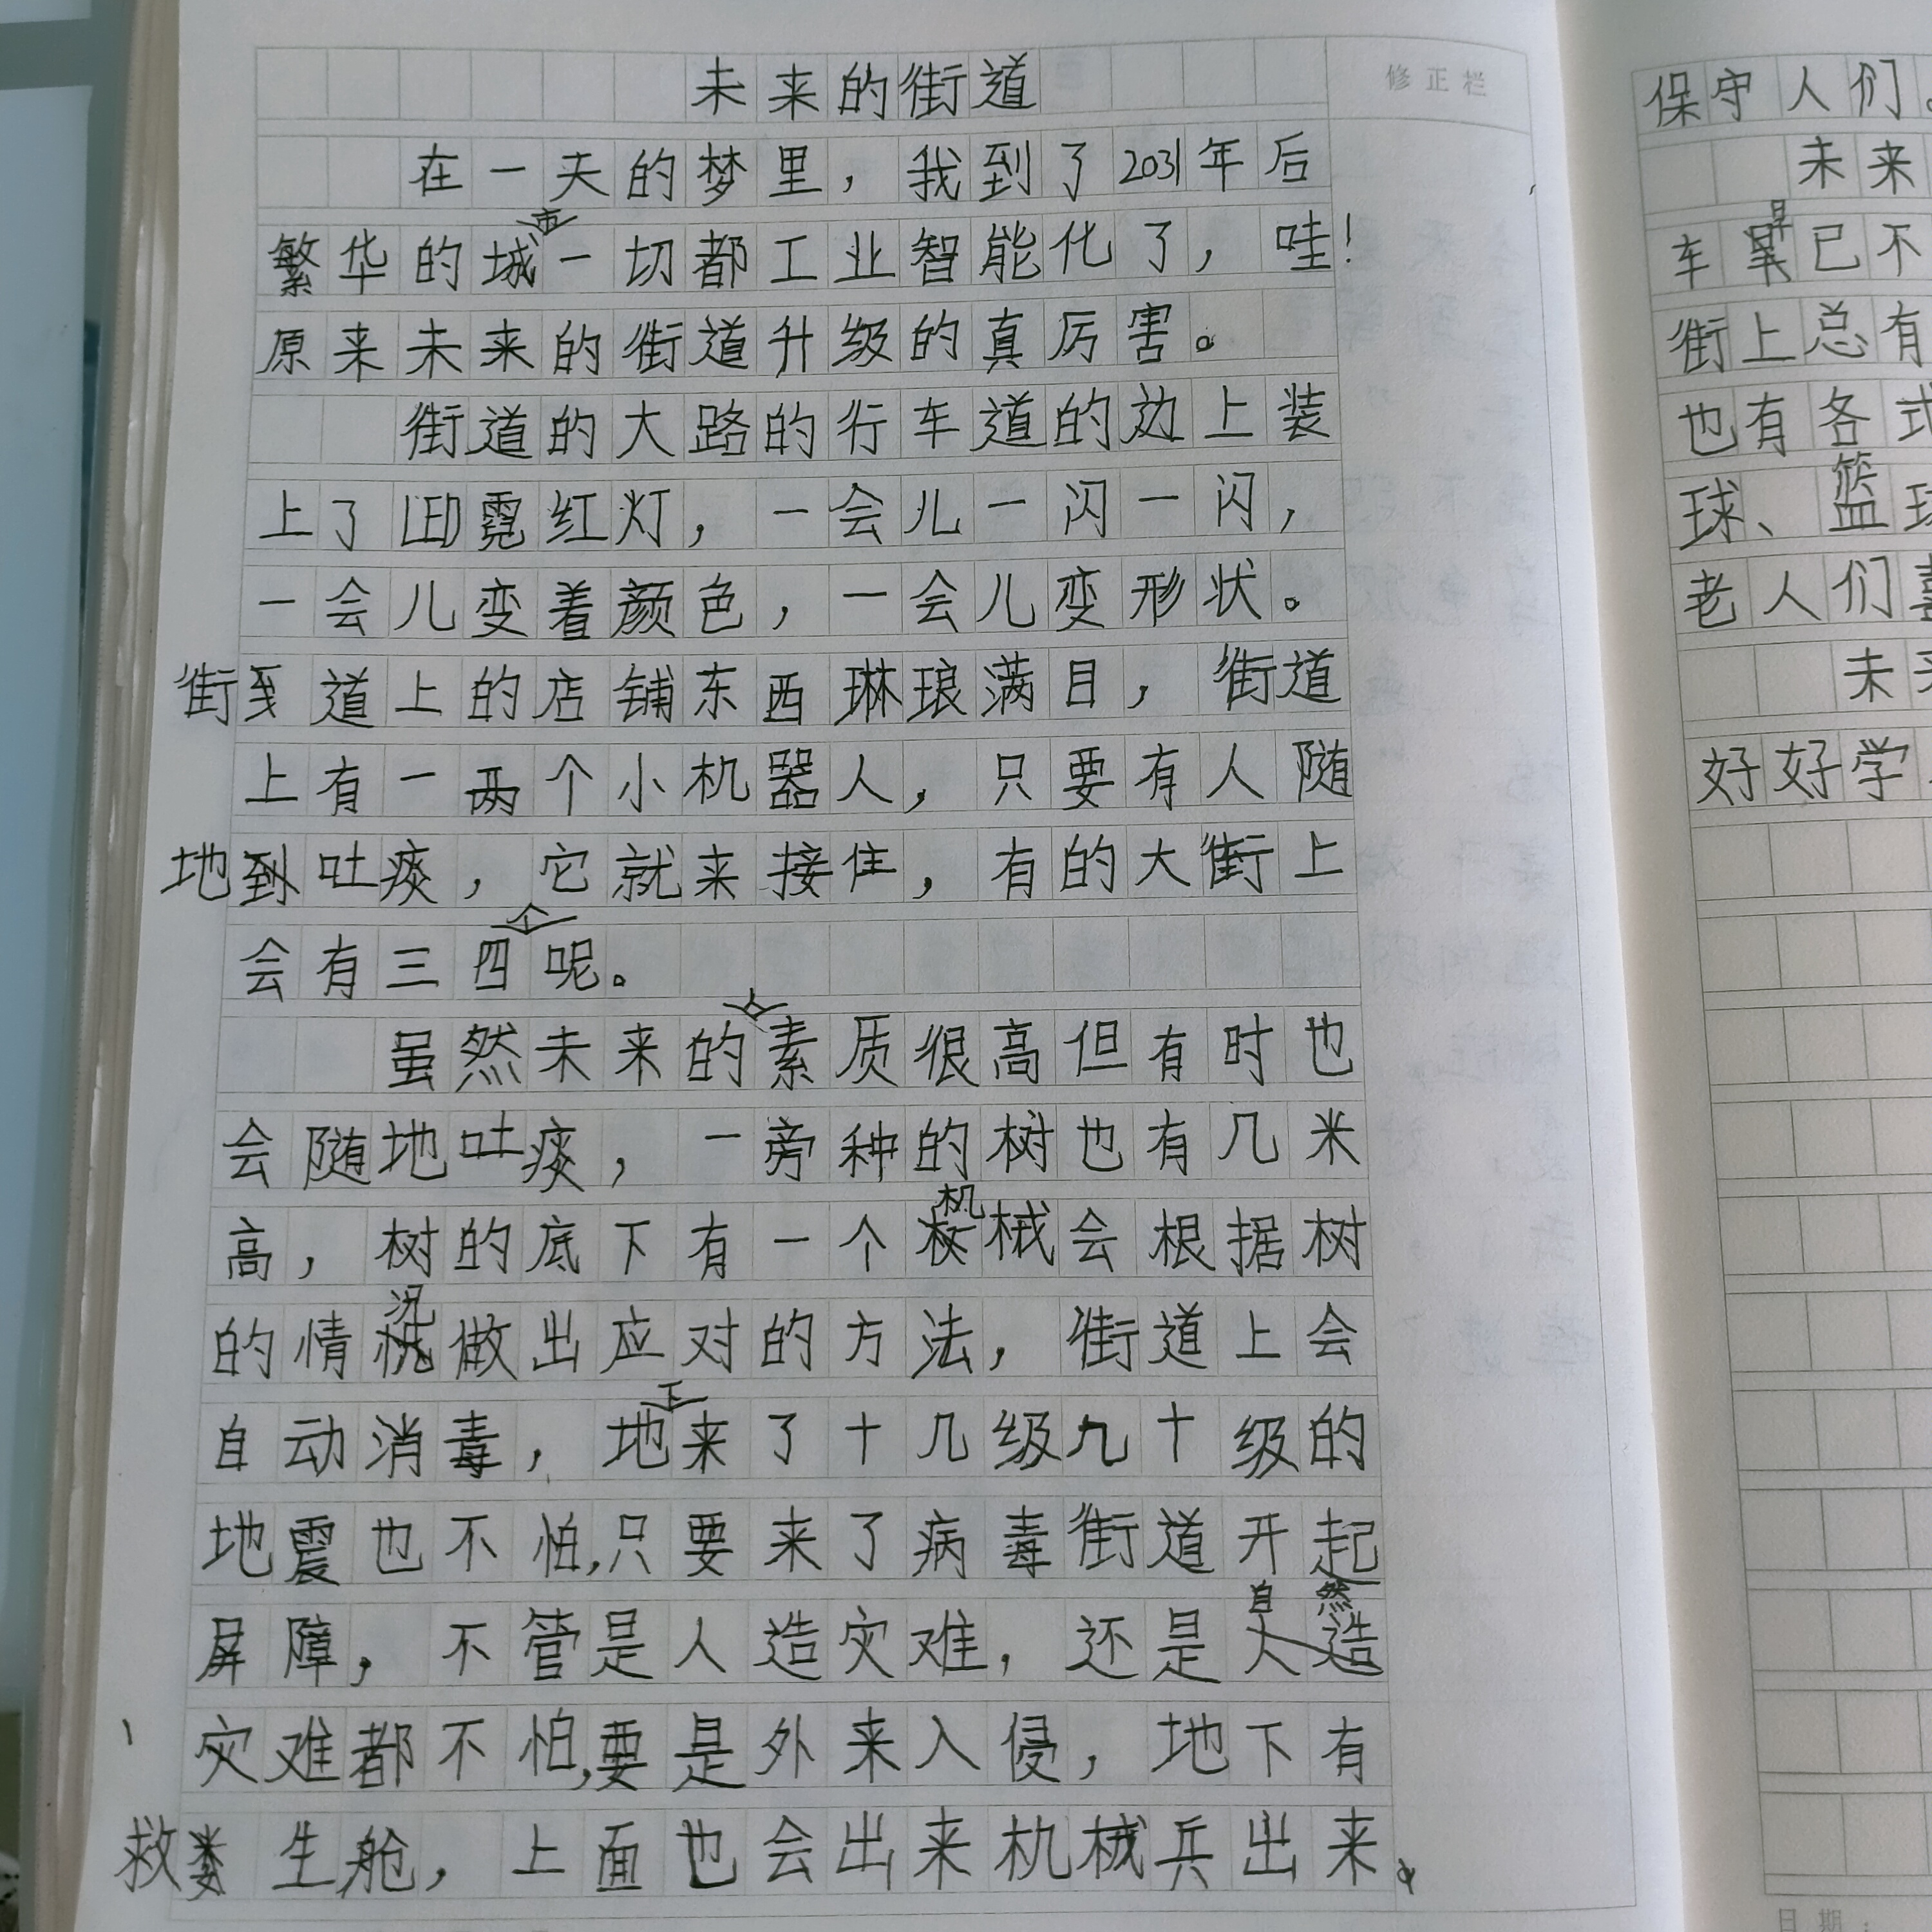 未来的街道
修正栏
在一天的梦里，我到了2031年后
繁华的城市一切都工业智能化了，哇！
原来未来的街道升级的真厉害。
街道的大路的行车道的边上装
上了LED霓红灯，一会儿一闪一闪，
一会儿变着颜色，一会儿变形状。
街道上的店铺东西琳琅满目，街道
上有一两个小机器人，只要有人随
地吐痰，它就来接住，有的大街上
会有三四个呢。
虽然未来的人素质很高但有时也
会随地吐痰，一旁种的树也有几米
高，树的底下有一个机械会根据树
的情况做出应对的方法，街道上会
自动消毒，地下来了十几级九十级的
地震也不怕，只要来了病毒街道开起
屏障，不管是人造灾难，还是自然
灾难都不怕，要是外来入侵，地下有
救生舱，上面也会出来机械兵出来。
保守人们。
未来
车早已不
街上总有
也有各式
球、篮球
老人们喜
未来
好好学
日期：